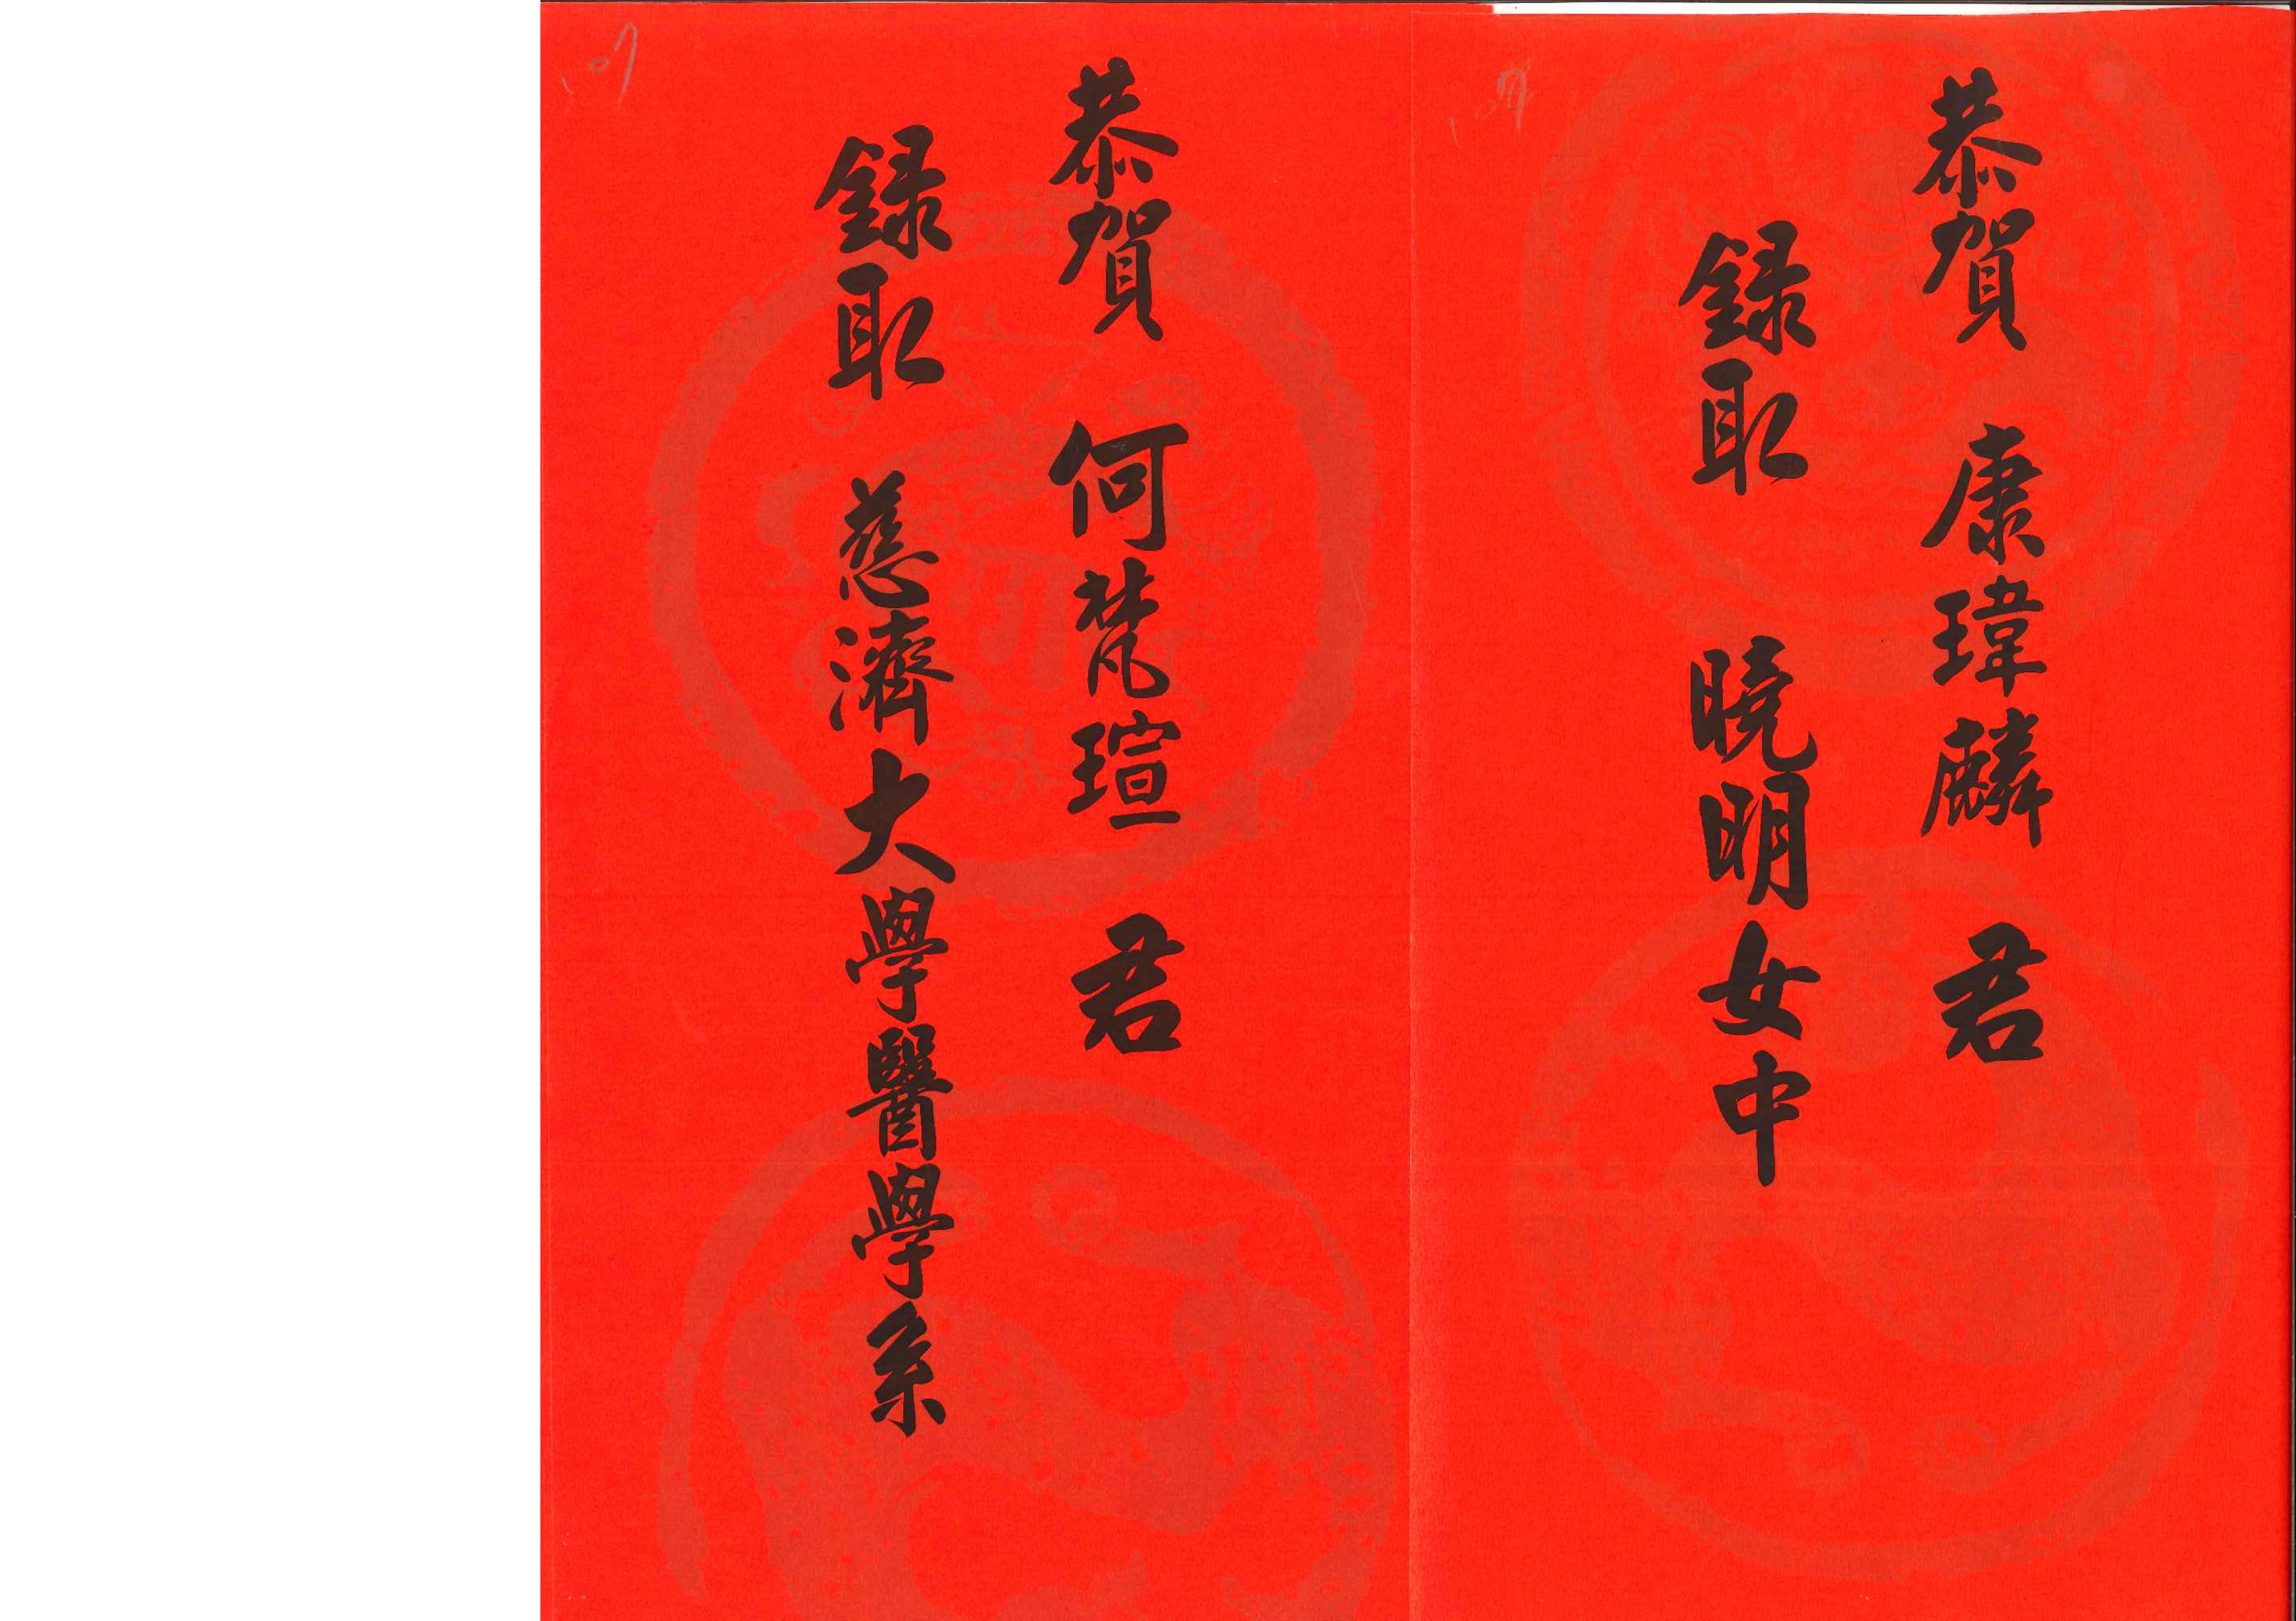 恭賀 康瑋麟 君
錄取 曉明女中
107
恭賀 何梵瑄 君
錄取 慈濟大學醫學系
107